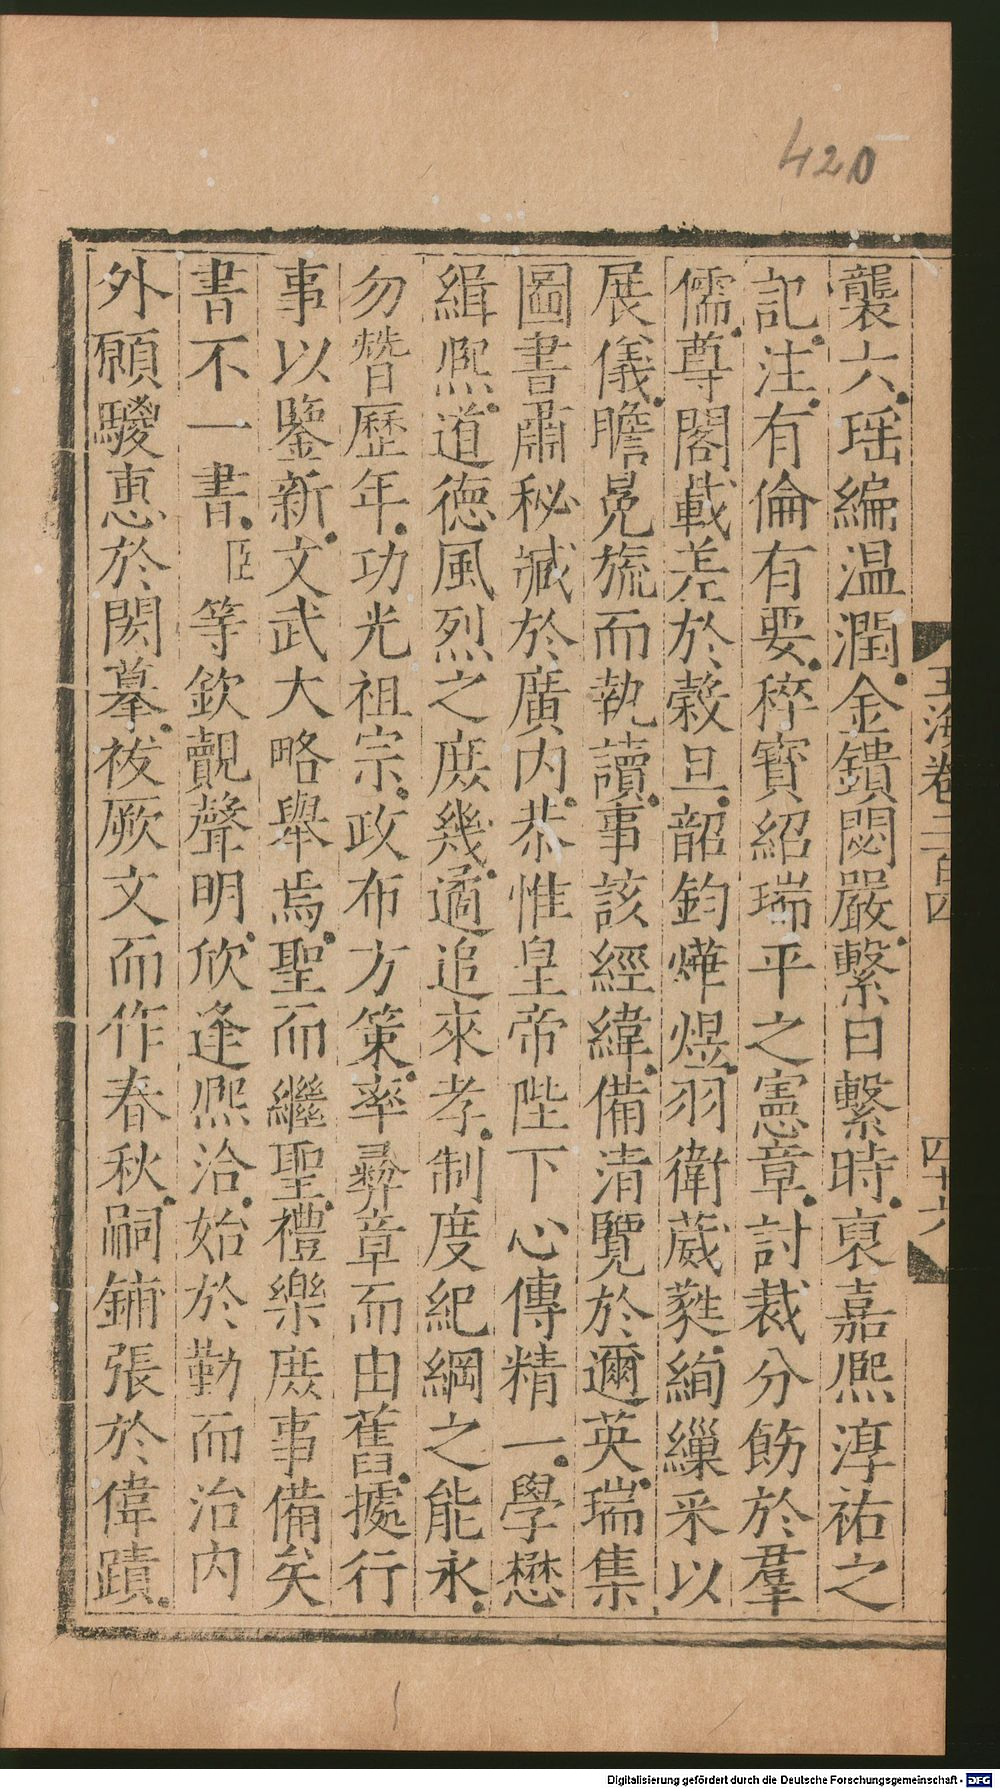 420
襲六瑶編温潤金鐀閟嚴繫日繫時裒嘉熙淳祐之
記注有倫有要稡寳紹瑞平之憲章討裁分飭於羣
儒尊閣載差於榖旦韶鈞燁煜羽衛葳蕤絢繅采以
展儀瞻冕旒而執讀事該經緯備清覽於邇英瑞集
圖書肅秘藏於廣内恭惟皇帝陛下心傳精一學懋
緝熙道德風烈之庶幾遹追來孝制度紀綱之能永
勿朁歷年功光祖宗政布方策率彛章而由舊據行
事以鑒新文武大略舉焉聖而繼聖禮樂庶事備矣
書不一書臣等欽覿聲明欣逢熙洽始於勤而治内
外願驟惠於閎摹祓厥文而作春秋嗣鋪張於偉蹟
玉海卷二百四
四十六
Digitalisierung gefördert durch die Deutsche Forschungsgemeinschaft - DFG